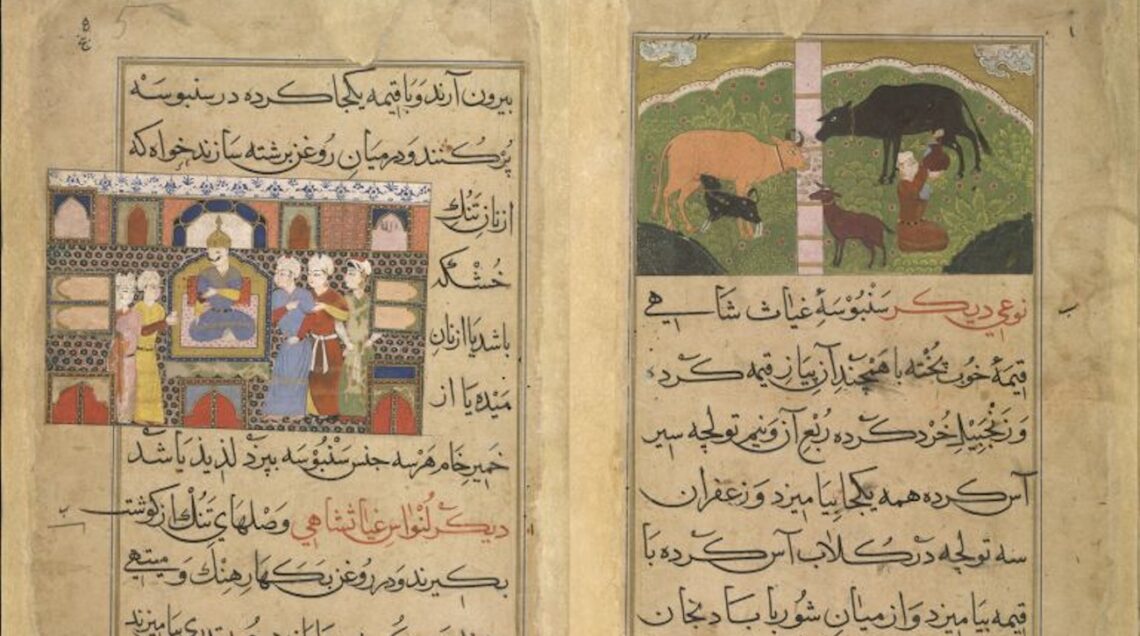 نوعی دیگر سنبوسهٔ غیاث شاهی
قیمهٔ خوب پخته با همچند آن پیاز قیمه کرده
و زنجبیل خرد کرده ربع آن و نیم تولچه سیر
آس کرده همه یکجا بیامیزد و زعفران
سه تولچه در گلاب آس کرده با
قیمه بیامیزد و از میان شوربا بادنجان
بیرون آرند و با قیمه یکجا کرده در سنبوسه
پر کنند و در میان روغن برشته سازند خواه که
از نان تنک
خشکه
باشد یا از نان
میده یا از
خمیر خام هر سه جنس سنبوسه بپزد لذیذ باشد
دیگر لنواس غیاثشاهی وصلهای تنک از گوشت
بگیرند و در روغن بگهار هنگ و میتهی